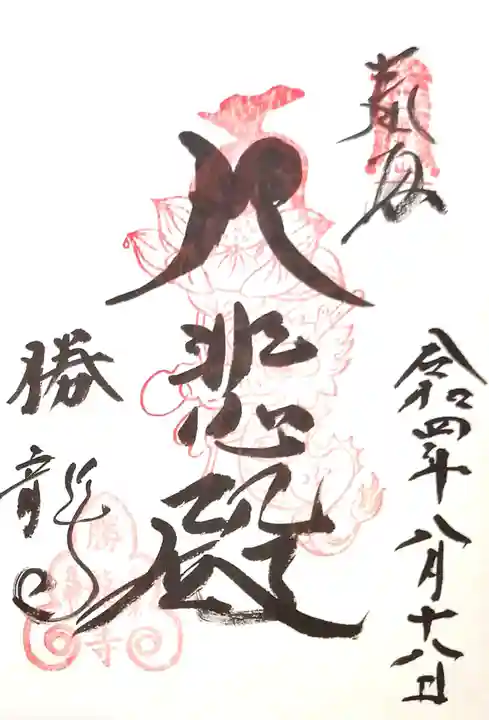 奉拝
令和四年八月十八日
大悲殿
勝龍
勝龍寺